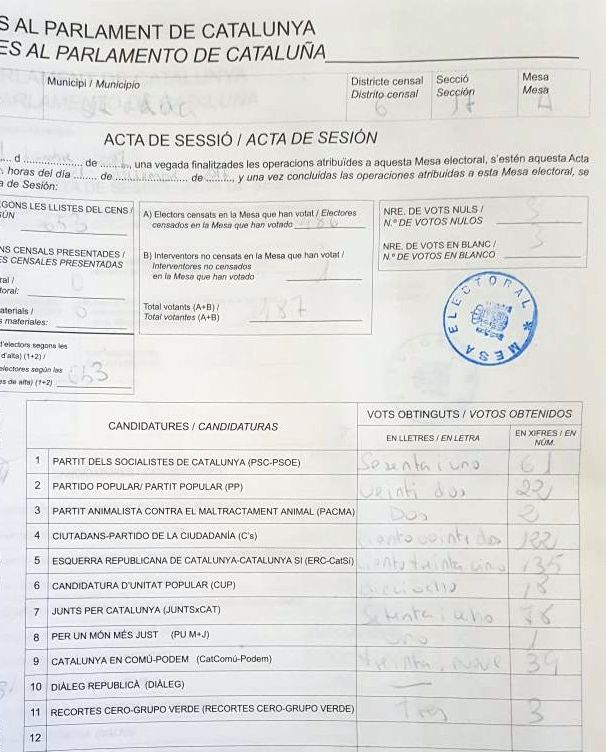 S AL PARLAMENT DE CATALUNYA
ES AL PARLAMENTO DE CATALUÑA
Municipi / Municipio
Districte censal
Distrito censal
6
Secció
Sección
Mesa
Mesa
A
ACTA DE SESSIÓ / ACTA DE SESIÓN
d de una vegada finalitzades les operacions atribuïdes a aquesta Mesa electoral, s'estén aquesta Acta
horas del día de de , y una vez concluidas las operaciones atribuidas a esta Mesa electoral, se
a de Sesión:
GONS LES LLISTES DEL CENS /
ÚN
653
NS CENSALS PRESENTADES /
ES CENSALES PRESENTADAS
0
ral /
toral:
aterials /
s materiales:
0
d'electors segons les
d'alta) (1+2) /
electores según las
es de alta) (1+2)
A) Electors censats en la Mesa que han votat / Electores
censados en la Mesa que han votado
486
B) Interventors no censats en la Mesa que han votat /
Interventores no censados
en la Mesa que han votado
1
Total votants (A+B) /
Total votantes (A+B)
487
NRE. DE VOTS NULS /
N.º DE VOTOS NULOS
3
NRE. DE VOTS EN BLANC /
N.º DE VOTOS EN BLANCO
3
MESA ELECTORAL *
CANDIDATURES / CANDIDATURAS
VOTS OBTINGUTS / VOTOS OBTENIDOS
EN LLETRES / EN LETRA
EN XIFRES / EN
NÚM.
1 PARTIT DELS SOCIALISTES DE CATALUNYA (PSC-PSOE) Sesenta i uno 61
2 PARTIDO POPULAR/ PARTIT POPULAR (PP) veinti dos 22
3 PARTIT ANIMALISTA CONTRA EL MALTRACTAMENT ANIMAL (PACMA) Dos 2
4 CIUTADANS-PARTIDO DE LA CIUDADANÍA (C's) ciento veinte dos 122
5 ESQUERRA REPUBLICANA DE CATALUNYA-CATALUNYA SI (ERC-CatSí) ciento treinta cinco 135
6 CANDIDATURA D'UNITAT POPULAR (CUP) dieciocho 18
7 JUNTS PER CATALUNYA (JUNTSxCAT) Setenta i ocho 78
8 PER UN MÓN MÉS JUST (PU M+J) uno 1
9 CATALUNYA EN COMÚ-PODEM (CatComú-Podem) treinta i nueve 39
10 DIÀLEG REPUBLICÀ (DIÀLEG) —
11 RECORTES CERO-GRUPO VERDE (RECORTES CERO-GRUPO VERDE) Tres 3
12